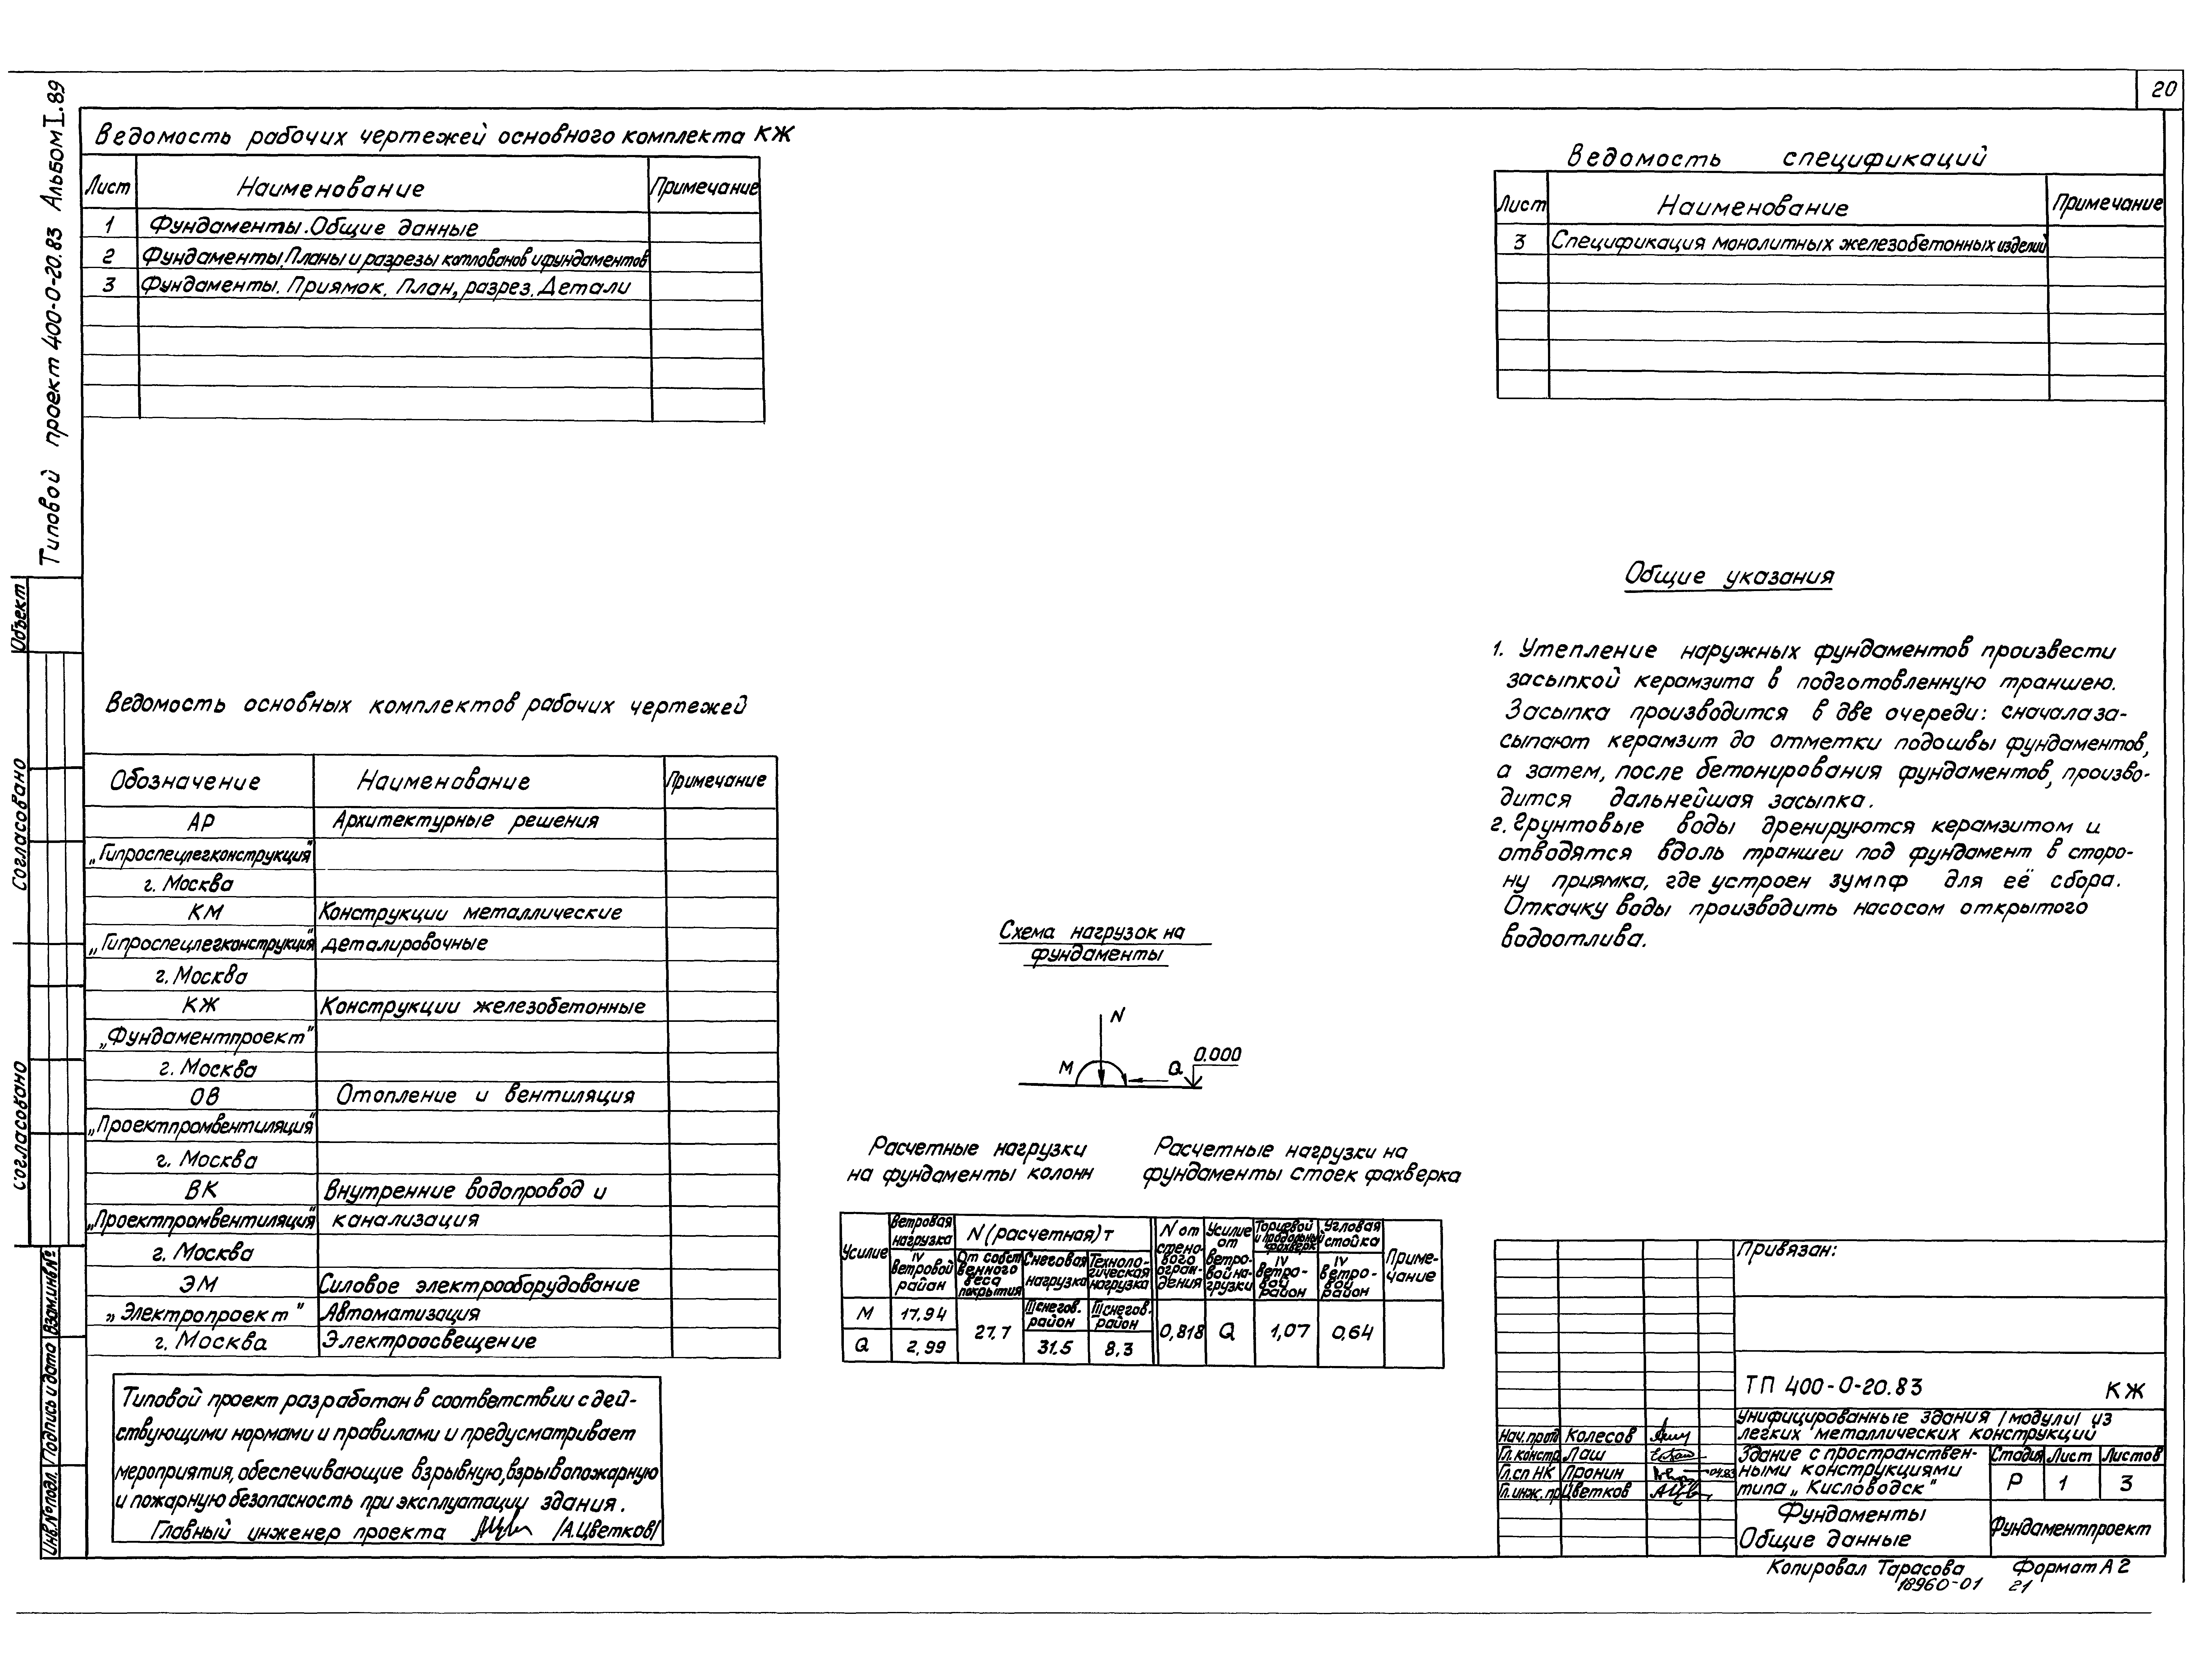 20
Типовой проект 400-0-20.83 Альбом I.89
Ведомость рабочих чертежей основного комплекта КЖ
Лист Наименование Примечание
1 Фундаменты. Общие данные
2 Фундаменты. Планы и разрезы котлованов и фундаментов
3 Фундаменты. Приямок. План, разрез. Детали
Ведомость спецификаций
Лист Наименование Примечание
3 Спецификация монолитных железобетонных изделий
Объект
Согласовано
Согласовано
Взам.инв№
Подпись и дата
Инв.№подл.
Ведомость основных комплектов рабочих чертежей
Обозначение Наименавание Примечание
АР Архитектурные решения
„Гипроспецлегконструкция"
г. Москва
КМ Конструкции металлические
„Гипроспецлегконструкция" деталировочные
г. Москва
КЖ Конструкции железобетонные
„Фундаментпроект"
г. Москва
ОВ Отопление и вентиляция
„Проектпромвентиляция"
г. Москва
ВК Внутренние водопровод и
„Проектпромвентиляция" канализация
г. Москва
ЭМ Силовое электрооборудование
„Электропроект" Автоматизация
г. Москва Электроосвещение
Типовой проект разработан в соответствии с дей-
ствующими нормами и правилами и предусматривает
мероприятия, обеспечивающие взрывную, взрывопожарную
и пожарную безопасность при эксплуатации здания.
Главный инженер проекта /А.Цветков/
Схема нагрузок на
фундаменты
N
M Q 0.000
Расчетные нагрузки
на фундаменты колонн
Расчетные нагрузки на
фундаменты стоек фахверка
Усилие
Ветровая
нагрузка
IV
ветровой
район
N (расчетная) т
От собст
венного
веса
покрытия
Снеговая
нагрузка
Техноло-
гическая
нагрузка
N от
стено-
вого
ограж-
дения
Усилие
от
ветро-
вой на-
грузки
Торцевой
и продольный
фахверк
IV
ветро-
вой
район
Угловая
стойка
IV
ветро-
вой
район
Приме-
чание
M 17.94 27.7 III снегов. район III снегов. район 0,818 Q 1,07 0,64
Q 2,99 31.5 8.3
Общие указания
1. Утепление наружных фундаментов произвести
засыпкой керамзита в подготовленную траншею.
Засыпка производится в две очереди: сначала за-
сыпают керамзит до отметки подошвы фундаментов,
а затем, после бетонирования фундаментов, произво-
дится дальнейшая засыпка.
2. Грунтовые воды дренируются керамзитом и
отводятся вдоль траншеи под фундамент в сторо-
ну приямка, где устроен зумпф для её сбора.
Откачку воды производить насосом открытого
водоотлива.
Привязан:
ТП 400-0-20.83 КЖ
Унифицированные здания /модули/ из
легких металлических конструкций
Нач.прота Колесов
Гл.констр. Лаш
Гл.сп НК Пронин 04.83
Гл.инж.пр Цветков
Здание с пространствен-
ными конструкциями
типа „Кисловодск"
Стадия Лист Листов
Р 1 3
Фундаменты
Общие данные
Фундаментпроект
Копировал Тарасова Формат А2
18960-01 21